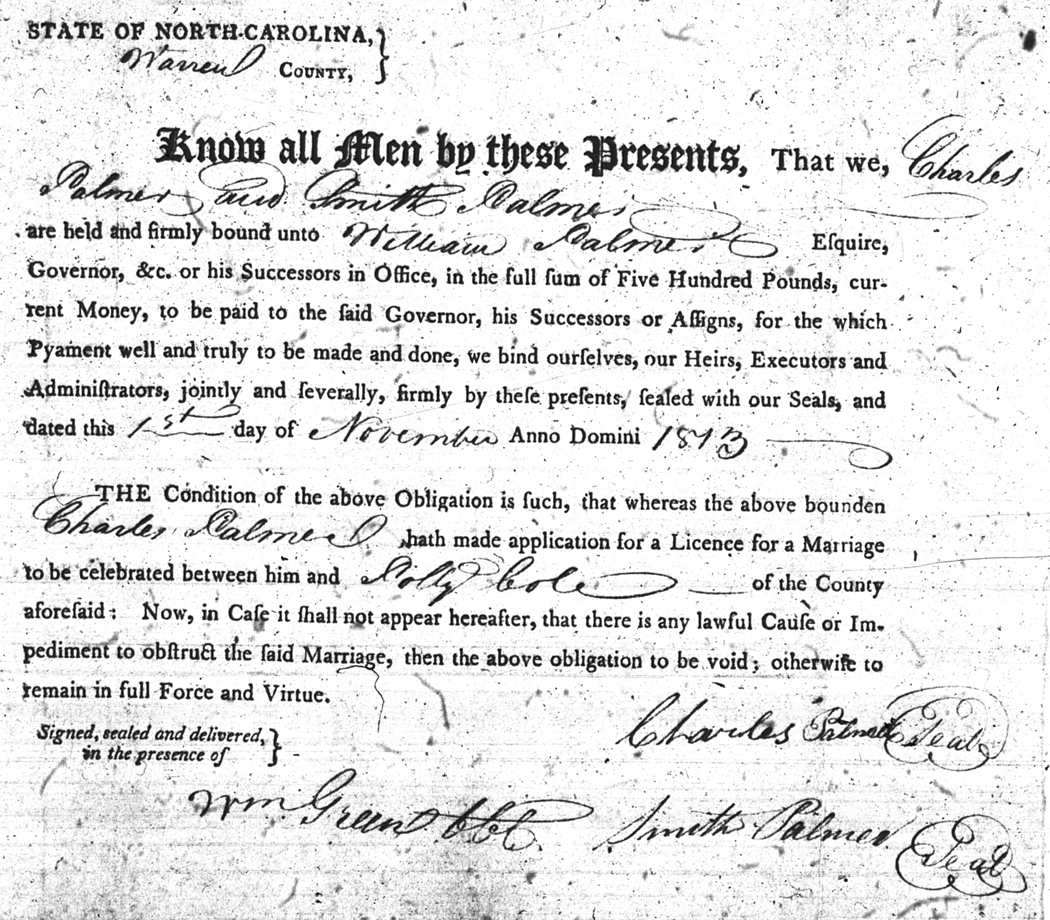 STATE OF NORTH-CAROLINA,
Warren COUNTY,
Know all Men by these Presents, That we, Charles
Palmer and Smith Palmer
are held and firmly bound unto William Palmer Eſquire,
Governor, &c. or his Succeſſors in Office, in the full ſum of Five Hundred Pounds, cur-
rent Money, to be paid to the ſaid Governor, his Succeſſors or Aſſigns, for the which
Pyament well and truly to be made and done, we bind ourſelves, our Heirs, Executors and
Adminiſtrators, jointly and ſeverally, firmly by theſe preſents, ſealed with our Seals, and
dated this 1st day of November Anno Domini 1813
THE Condition of the above Obligation is ſuch, that whereas the above bounden
Charles Palmer hath made application for a Licence for a Marriage
to be celebrated between him and Polly Cole of the County
aforeſaid: Now, in Caſe it ſhall not appear hereafter, that there is any lawful Cauſe or Im-
pediment to obſtruct the ſaid Marriage, then the above obligation to be void; otherwiſe to
remain in full Force and Virtue.
Signed, sealed and delivered,
in the presence of
Charles Palmer Seal
Wm Green CCC
Smith Palmer Seal